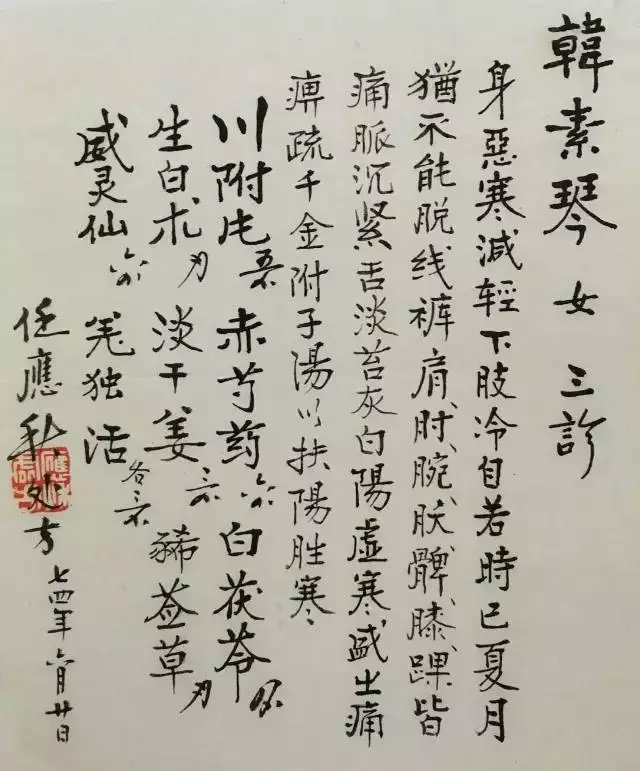 韓素琴 女 三診
身惡寒減輕下肢冷自若時已夏月
猶不能脱线裤肩、肘、腕、髀、膝、踝皆
痛脈沉紧舌淡苔灰白陽虚寒盛之痛
痹疏千金附子湯以扶陽胜寒
川附片 赤芍药 白茯苓
生白术 淡干姜 豨莶草
威灵仙 羌独活 各三
任應秋处方 七四年六月廿日